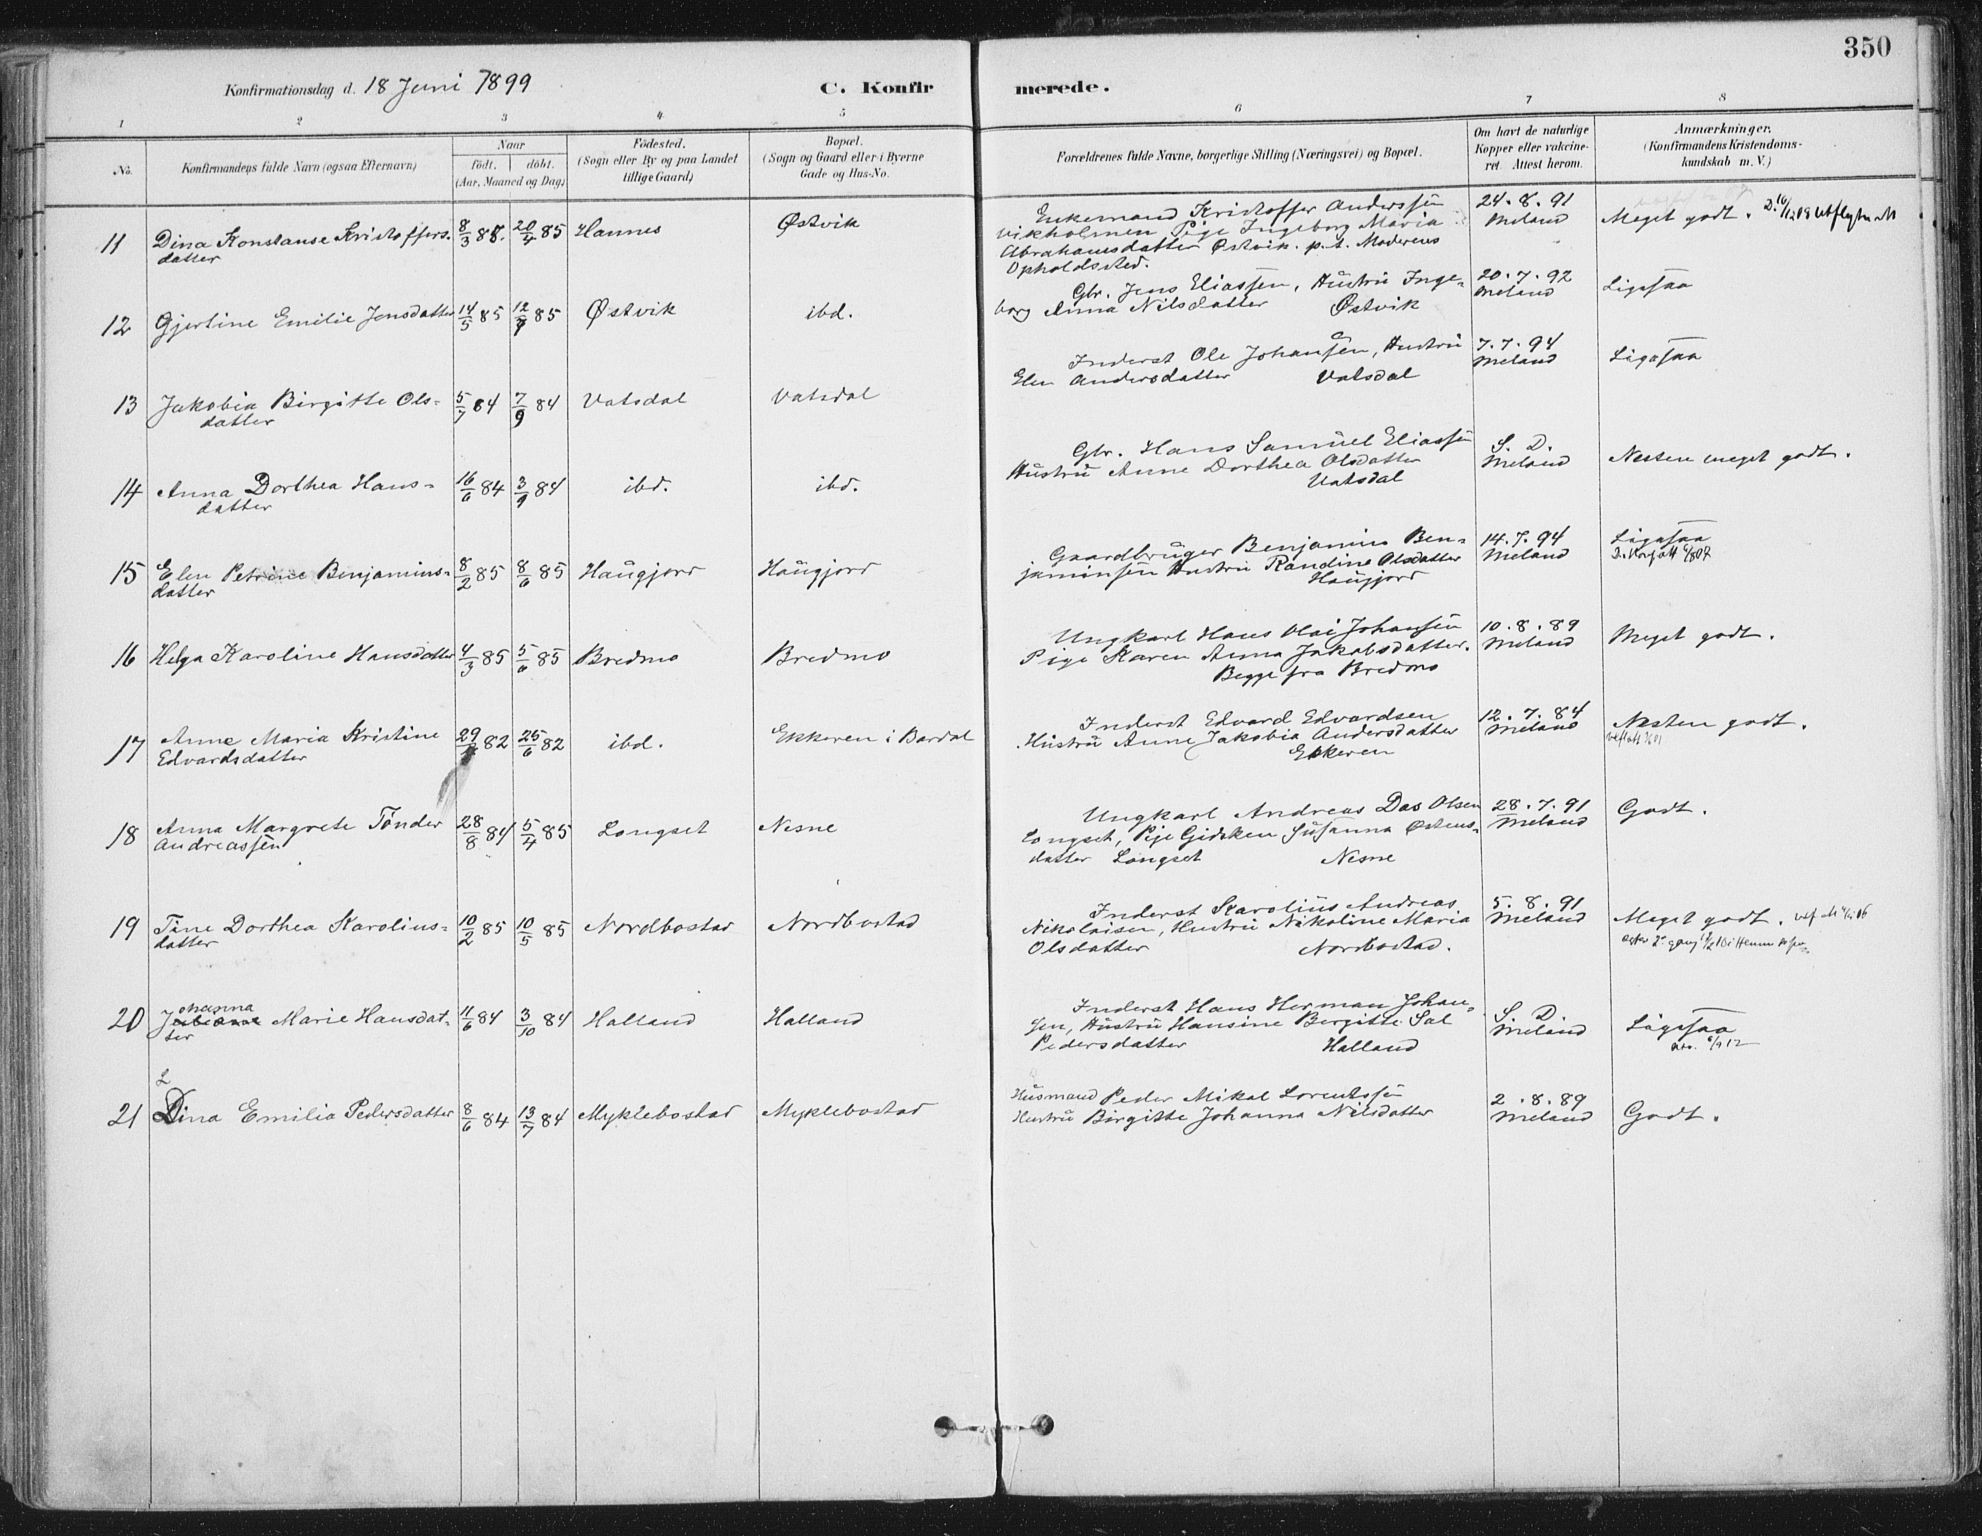 350
Konfirmationsdag d. 18 Juni 1899
C. Konfirmerede.
1 2 3 4 5 6 7 8
No.
Konfirmandens fulde Navn (ogsaa Efternavn)
Naar
födt. döbt.
(Aar, Maaned og Dag)
Födested.
(Sogn eller By og paa Landet
tillige Gaard)
Bopæl.
(Sogn og Gaard eller i Byerne
Gade og Hus-No.
Forældrenes fulde Navne, borgerlige Stilling (Næringsvei) og Bopæl.
Om havt de naturlige
Kopper eller vakcine-
ret. Attest herom.
Anmærkninger.
(Konfirmandens Kristendoms-
kundskab m. V.)
11 Dina Konstanse Kristoffers- 8/3 85. 20/4 85 Hannes Østvik
datter
Enkemand Kristoffer Anderssen
Vikholmen Pige Ingeborg Maria
Abrahamsdatter Østvik. p.t. Moderens
Opholdssted.
24.8.91
Meland
Meget godt.
12 Gjertine Emilie Jensdatter 14/5 85 12/7 85 Østvik ibd.
Gbr. Jens Eliassen, Hustru Inge-
borg Anna Nilsdatter Østvik
20.7.92
Meland
Ligesaa
13 Jakobia Birgitte Ols- 5/7 84 7/9 84 Vatsdal Vatsdal
datter
Inderst Ole Johansen, Hustru
Elen Andersdatter Vatsdal
7.7.94
Meland
Ligesaa
14 Anna Dorthea Hans- 16/6 84 3/9 84 ibd. ibd.
datter
Gbr. Hans Samuel Eliassen
Hustru Anne Dorthea Olsdatter
Vatsdal
S. D.
Meland
Nesten meget godt.
15 Elen Petrine Benjamins- 8/2 85 8/6 85 Haugjord Haugjord
datter
Gaardbruger Benjamin Ben-
jaminsen Hustru Randine Olsdatter
Haugjord
14.7.94
Meland
Ligesaa
16 Helga Karoline Hansdatter 4/3 85 5/6 85 Bredmo Bredmo
Ungkarl Hans Olai Johansen
Pige Karen Anna Jakobsdatter.
Begge fra Bredmo
10.8.89
Meland
Meget godt.
17 Anne Maria Kristine 82 25/6 82 ibd. Ekkeren i Bardal
Edvardsdatter
Inderst Edvard Edvardsen
Hustru Anne Jakobia Andersdatter
Ekkeren
12.7.84
Meland
Nesten godt.
18 Anna Margrete Tønder 28/8 84 5/4 85 Longset Nesne
Andreassen
Ungkarl Andreas Das Olsen
Longset, Pige Gidsken Susanna Østens-
datter Longset Nesne
28.7.91
Meland
Godt.
19 Tine Dorthea Karolius- 10/2 85 10/5 85 Nordbostad Nordbostad
datter
Inderst Karolius Andreas
Nikolaisen, Hustru Nikoline Maria
Olsdatter Nordbostad.
5.8.91
Meland
Meget godt.
20 Johanna Marie Hansdat- 11/6 84 3/10 84 Halland Halland
ter
Inderst Hans Herman Johan-
sen, Hustru Hansine Bergitte Sal
Pedersdatter Halland
S. D.
Meland
Ligesaa
21 Dina Emilia Pedersdatter 8/6 84 13/7 84 Myklebostad Myklebostad
L
Husmand Peder Mikal Lorentssen
Hustru Birgitte Johanna Nilsdatter
2.8.89
Meland
Godt.